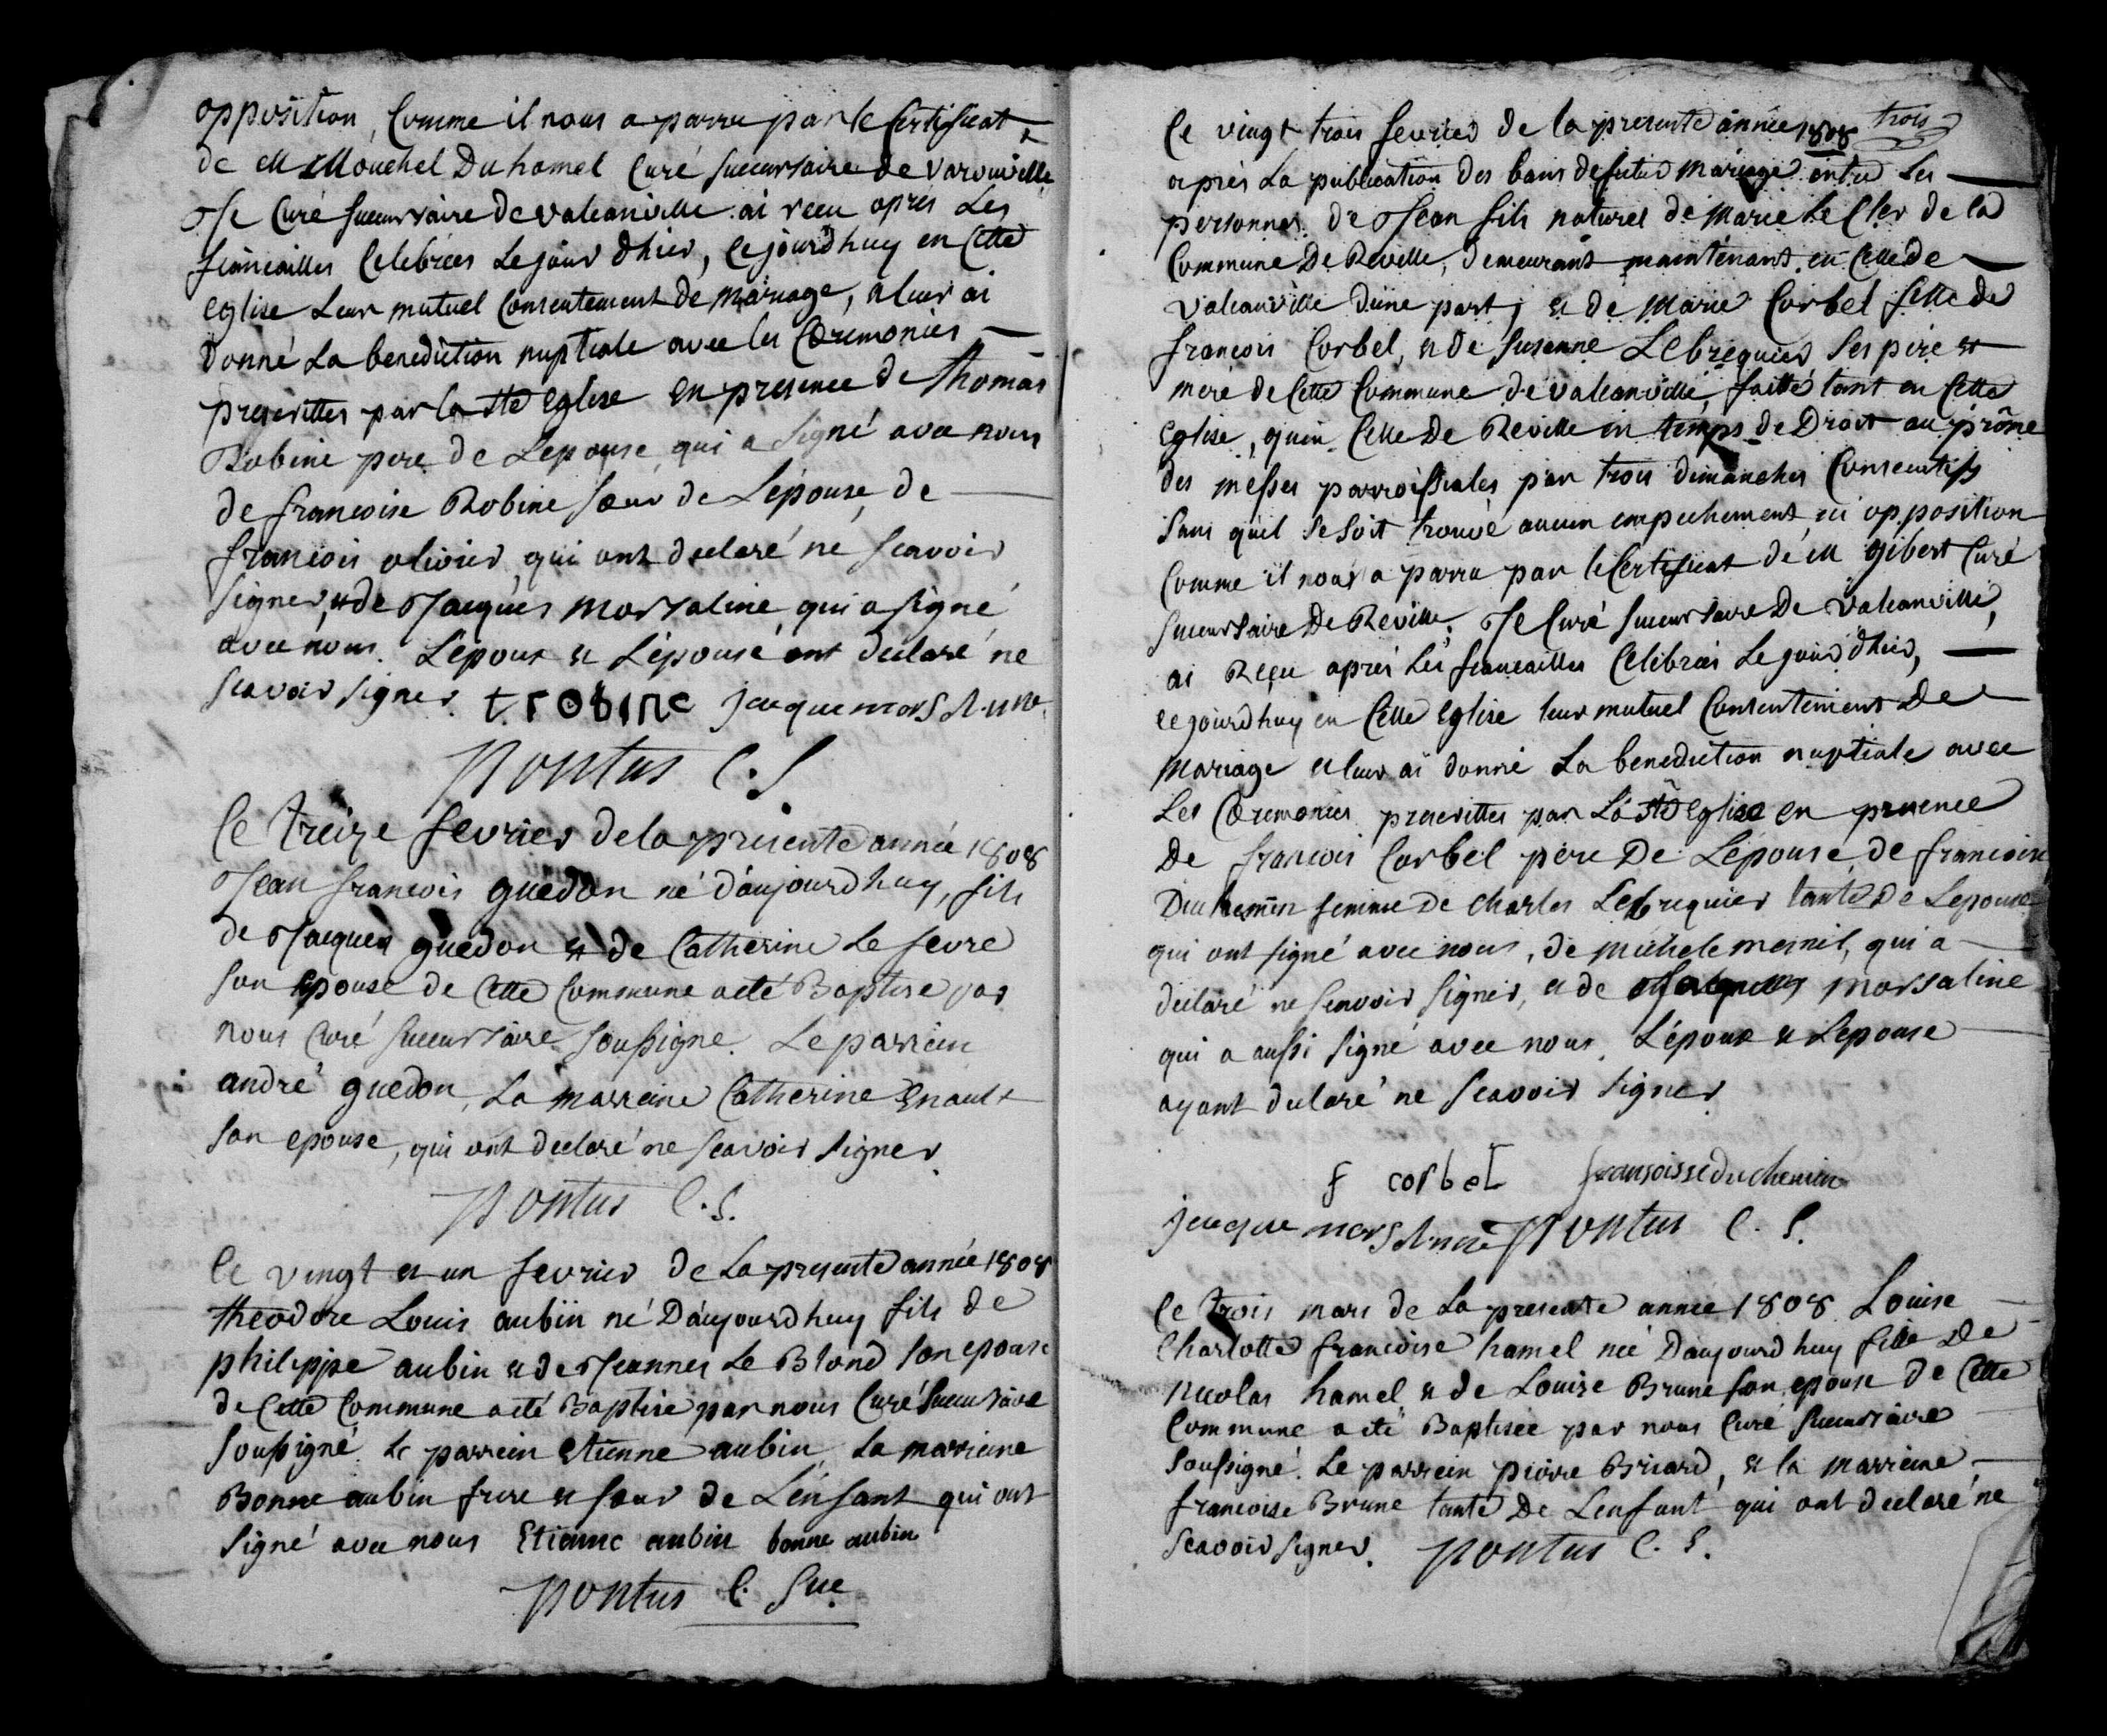 opposition, Comme il nous a parru par le Certificat
de M Mouchel Duhamel Curé succursaire de varouville
Je Curé succursaire de valcanville ai recu après Les
fiancailles Celebrées Le jour d'hier, Ce jourd'huy en Cette
eglise Leur mutuel Consentement de mariage, & leur ai
donné La benediction nuptiale avec les Cœremonies
prescrittes par la Ste Eglise en presence de thomas
Robine pere de L'epouse, qui a signé avec nous
de francoise Robine sœur de L'épouse, de
francois olivier, qui ont declaré ne scavoir
signer, & de Jacques morsaline, qui a signé
avec nous. L'époux & L'épouse ont declaré ne
scavoir signer. t robine jacque morsaline
Pontus C. S
Ce treize fevrier de la presente année 1808
Jean francois guedon né d'aujourd'huy, fils
de Jacques guedon & de Catherine Le fevre
son epouse de Cette Commune a eté Baptisé par
nous Curé succursaire soussigné. Le parrein
andré guedon, La marreine Catherine Enault
son epouse, qui ont declaré ne scavoir signer.
Pontus C. S.
Ce vingt & un fevrier de La presente année 1808
theodore Louis aubin né D'aujourd'huy fils de
philippe aubin & de Jeannes Le Blond son epouse
de Cette Commune a eté Baptisé par nous Curé succursaire
soussigné. Le parrein Etienne aubin, La marreine
Bonne aubin frere & sœur de L'enfant qui ont
signé avec nous Etienne aubin bonne aubin
Pontus C. Suc
trois
Ce vingt trois fevrier de la presente année 1808
après La publication des bans de futur mariage entre Les
personnes de Jean fils naturel de Marie Le Cler de la
Commune De Reville, demeurant maintenant en Celle de
valcanville d'une part, & de Marie Corbel fille de
francois Corbel, & de Susanne Lebrequier ses père &
mère de Cette Commune de valcanville, faitte tant en Cette
eglise, qu'en Celle De Reville en temps de Droit au prône
des messes parroissiales par trois dimanches Consecutifs
sans qu'il se soit trouvé aucun empechement, ni opposition
Comme il nous a parru par le Certificat de M gibert Curé
succursaire De Reville. Je Curé succursaire De valcanville,
ai Reçu après Les fiancailles Celebrées Le jour d'hier,
ce jourd'huy en Cette Eglise leur mutuel Consentement De
Mariage & leur ai donné La benediction nuptiale avec
Les Cœremonies prescrittes par La Ste Eglise en presence
De francois Corbel père De L'épouse, de francoise
Duchemin femme De Charles Lebrequier tante De L'epouse
qui ont signé avec nous, de michel emesnil, qui a
declaré ne scavoir signer, & de Jacques morsaline
qui a aussi signé avec nous. L'époux & L'epouse
ayant declaré ne scavoir signer
f corbel fransoisse duchemin
jacque morsaline Pontus C. S.
Ce trois mars de La presente année 1808 Louise
Charlotte francoise hamel née D'aujourd'huy fille De
Nicolas hamel & de Louise Brune son epouse de Cette
Commune a eté Baptisée par nous Curé succursaire
soussigné. Le parrein pierre Bricard, & la marreine
francoise Brune tante De L'enfant qui ont declaré ne
scavoir signer. Pontus C. S.